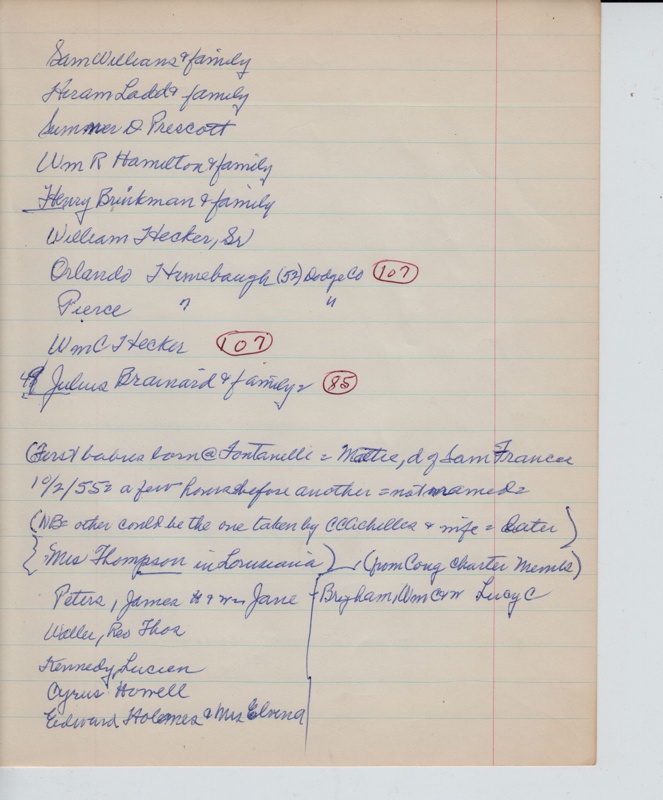 Sam Williams & family
Hiram Ladd & family
Sumner D Prescott
Wm R Hamilton & family
Henry Brinkman & family
William Hecker, Sr
Orlando Himebaugh (52) Dodge Co 107
Pierce " "
Wm C Hecker 107
Julius Brainard & family = 85
(First babies born @ Fontanelle = Mattie, d of Sam Francee
10/2/55 = a few hours before another = not named =
(NB = other could be the one taken by CC Achilles & wife = later)
{ Mrs Thompson in Louisiana) (from Cong Charter Membs)
Peters, James H & w = Jane Brigham, Wm C & w Lucy C
Waller, Rev Thos
Kennedy, Lucien
Cyrus Howell
Edward Holmes & Mrs Elvena